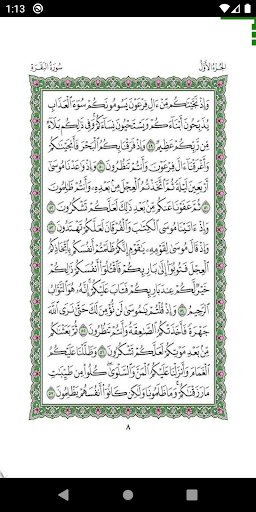 1:13
الجزء الأول
سورة البقرة
وَإِذْ نَجَّيْنَٰكُم مِّنْ ءَالِ فِرْعَوْنَ يَسُومُونَكُمْ سُوٓءَ ٱلْعَذَابِ
يُذَبِّحُونَ أَبْنَآءَكُمْ وَيَسْتَحْيُونَ نِسَآءَكُمْ ۚ وَفِى ذَٰلِكُم بَلَآءٌ
مِّن رَّبِّكُمْ عَظِيمٌ ٤٩ وَإِذْ فَرَقْنَا بِكُمُ ٱلْبَحْرَ فَأَنجَيْنَٰكُمْ
وَأَغْرَقْنَآ ءَالَ فِرْعَوْنَ وَأَنتُمْ تَنظُرُونَ ٥٠ وَإِذْ وَٰعَدْنَا مُوسَىٰٓ
أَرْبَعِينَ لَيْلَةً ثُمَّ ٱتَّخَذْتُمُ ٱلْعِجْلَ مِنۢ بَعْدِهِۦ وَأَنتُمْ ظَٰلِمُونَ
٥١ ثُمَّ عَفَوْنَا عَنكُم مِّنۢ بَعْدِ ذَٰلِكَ لَعَلَّكُمْ تَشْكُرُونَ ٥٢
وَإِذْ ءَاتَيْنَا مُوسَى ٱلْكِتَٰبَ وَٱلْفُرْقَانَ لَعَلَّكُمْ تَهْتَدُونَ ٥٣
وَإِذْ قَالَ مُوسَىٰ لِقَوْمِهِۦ يَٰقَوْمِ إِنَّكُمْ ظَلَمْتُمْ أَنفُسَكُم بِٱتِّخَاذِكُمُ
ٱلْعِجْلَ فَتُوبُوٓا۟ إِلَىٰ بَارِئِكُمْ فَٱقْتُلُوٓا۟ أَنفُسَكُمْ ذَٰلِكُمْ
خَيْرٌ لَّكُمْ عِندَ بَارِئِكُمْ فَتَابَ عَلَيْكُمْ ۚ إِنَّهُۥ هُوَ ٱلتَّوَّابُ
ٱلرَّحِيمُ ٥٤ وَإِذْ قُلْتُمْ يَٰمُوسَىٰ لَن نُّؤْمِنَ لَكَ حَتَّىٰ نَرَى ٱللَّهَ
جَهْرَةً فَأَخَذَتْكُمُ ٱلصَّٰعِقَةُ وَأَنتُمْ تَنظُرُونَ ٥٥ ثُمَّ بَعَثْنَٰكُم
مِّنۢ بَعْدِ مَوْتِكُمْ لَعَلَّكُمْ تَشْكُرُونَ ٥٦ وَظَلَّلْنَا عَلَيْكُمُ
ٱلْغَمَامَ وَأَنزَلْنَا عَلَيْكُمُ ٱلْمَنَّ وَٱلسَّلْوَىٰ ۖ كُلُوا۟ مِن طَيِّبَٰتِ
مَا رَزَقْنَٰكُمْ ۖ وَمَا ظَلَمُونَا وَلَٰكِن كَانُوٓا۟ أَنفُسَهُمْ يَظْلِمُونَ ٥٧
٨